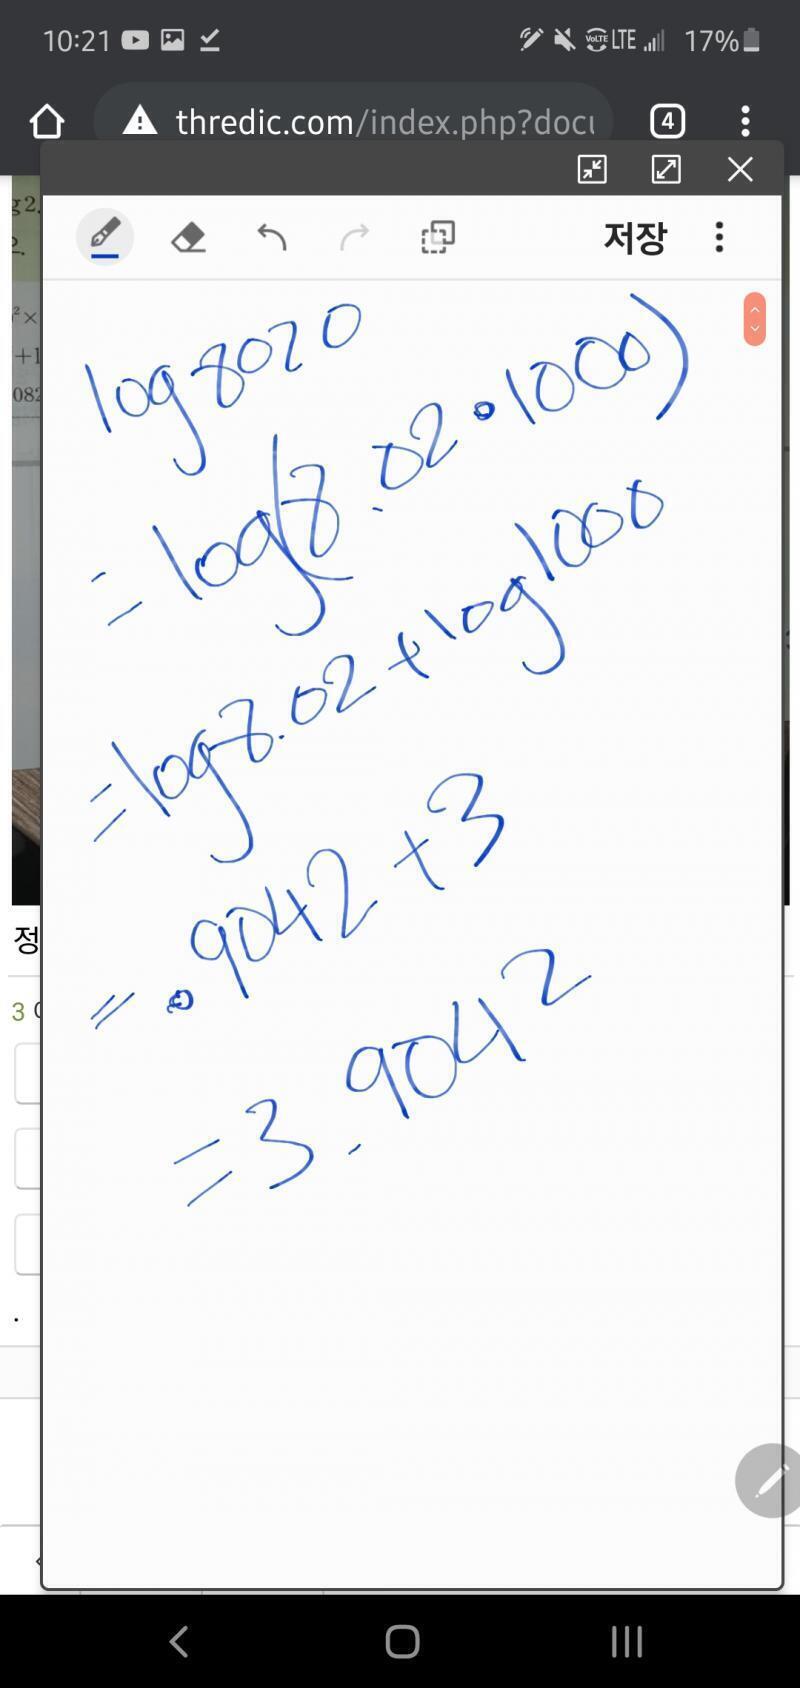 10:21
VoLTE LTE 17%
thredic.com/index.php?docu
4
g2.
² ×
+1
082
저장
log 8020
= log(8.02 • 1000)
= log 8.02 + log 1000
= 0.9042 + 3
= 3.9042
정
3